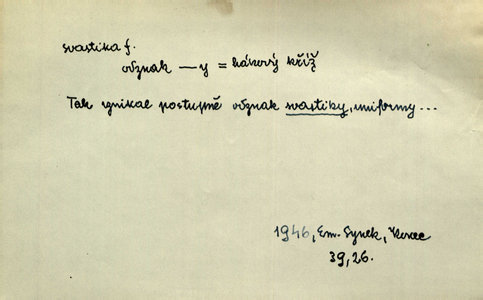 svastika f.
odznak — y = hákový kříž
Tak vznikal postupně odznak svastiky, uniformy ...
1946, Em. Synek, Konec
39, 26.